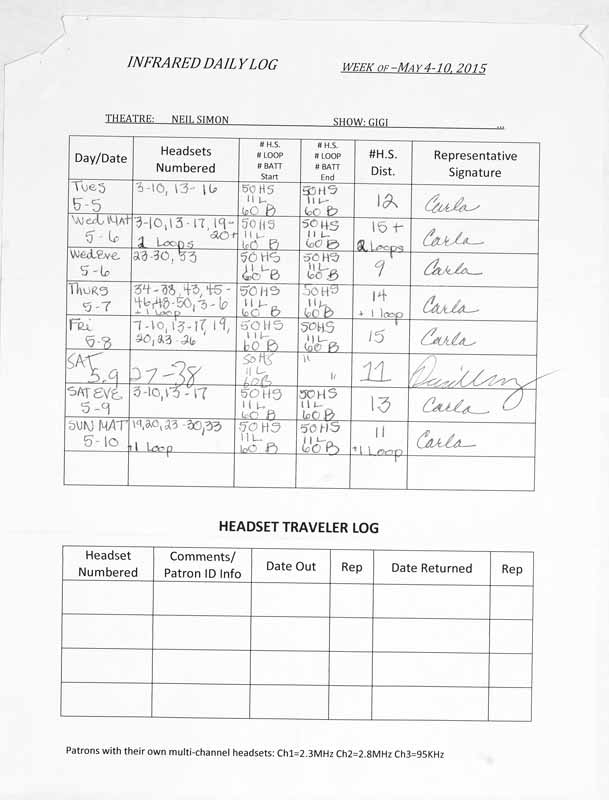 INFRARED DAILY LOG WEEK OF –MAY 4-10, 2015
THEATRE: NEIL SIMON SHOW: GIGI ...
Day/Date Headsets Numbered # H.S. # LOOP # BATT Start # H.S. # LOOP # BATT End #H.S. Dist. Representative Signature
Tues 5-5 3-10, 13-16 50HS 11L 60B 50HS 11L 60B 12 Carla
Wed MAT 5-6 3-10, 13-17, 19-20+ 2 Loops 50HS 11L 60B 50HS 11L 60B 15+ 2 Loops Carla
Wed Eve 5-6 23-30, 33 50HS 11L 60B 50HS 11L 60B 9 Carla
THURS 5-7 34-38, 43, 45-46, 48-50, 3-6 +1 Loop 50HS 11L 60B 50HS 11L 60B 14 +1 loop Carla
Fri 5-8 7-10, 13-17, 19, 20, 23-26 50HS 11L 60B 50HS 11L 60B 15 Carla
SAT 5.9 27-38 50HS 11L 60B " " 11
SAT EVE 5-9 3-10, 13-17 50HS 11L 60B 50HS 11L 60B 13 Carla
SUN MAT 5-10 19, 20, 23-30, 33 +1 Loop 50HS 11L 60B 50HS 11L 60B 11 +1 Loop Carla
HEADSET TRAVELER LOG
Headset Numbered Comments/ Patron ID Info Date Out Rep Date Returned Rep
Patrons with their own multi-channel headsets: Ch1=2.3MHz Ch2=2.8MHz Ch3=95KHz